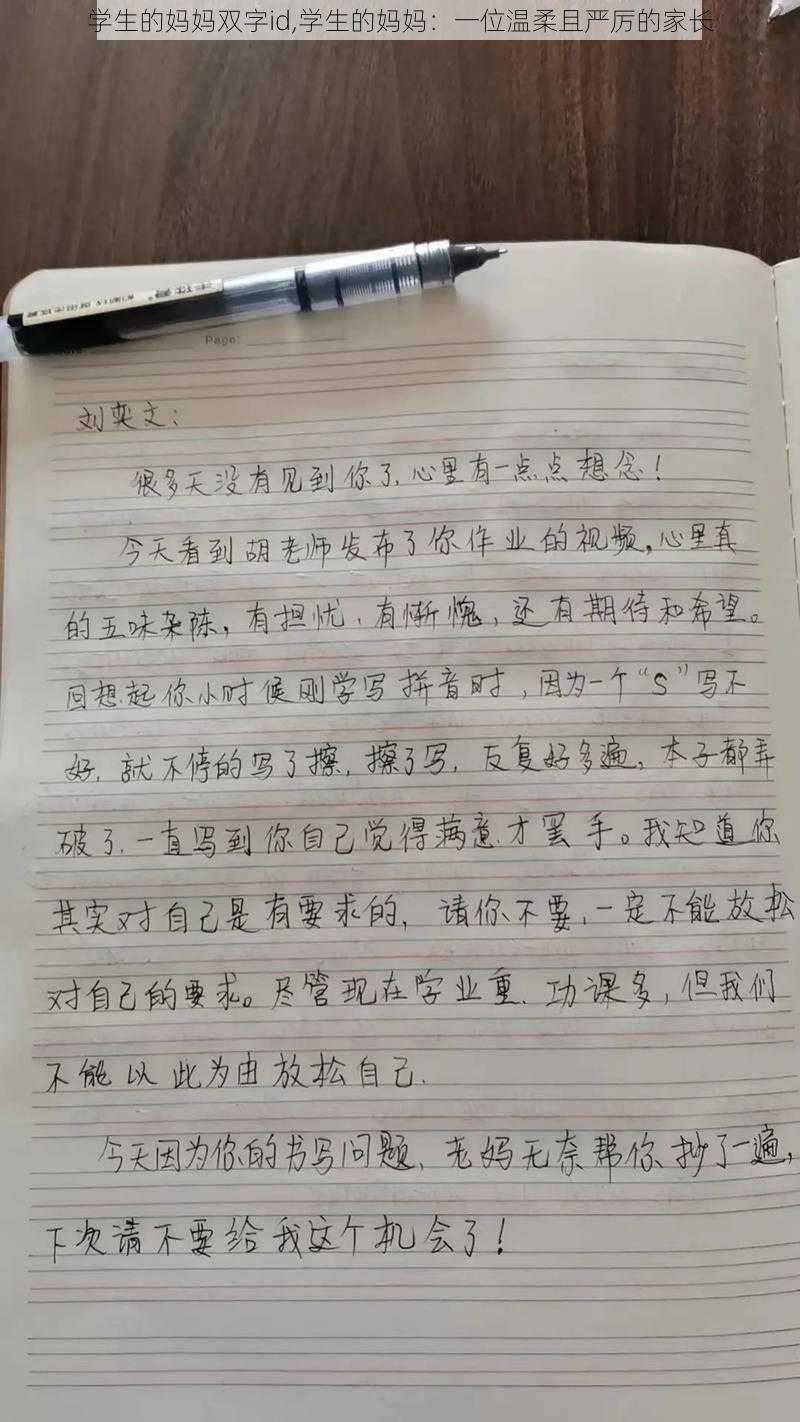 学生的妈妈双字id,学生的妈妈：一位温柔且严厉的家长
Page:
刘奕文：
很多天没有见到你了，心里有一点点想念！
今天看到胡老师发布了你作业的视频，心里真
的五味杂陈，有担忧，有惭愧，还有期待和希望。
回想起你小时候刚学写拼音时，因为一个“S”写不
好，就不停的写了擦，擦了写，反复好多遍，本子都弄
破了，一直写到你自己觉得满意才罢手。我知道你
其实对自己是有要求的，请你不要，一定不能放松
对自己的要求。尽管现在学业重，功课多，但我们
不能以此为由放松自己.
今天因为你的书写问题，老妈无奈帮你抄了一遍，
下次请不要给我这个机会了！